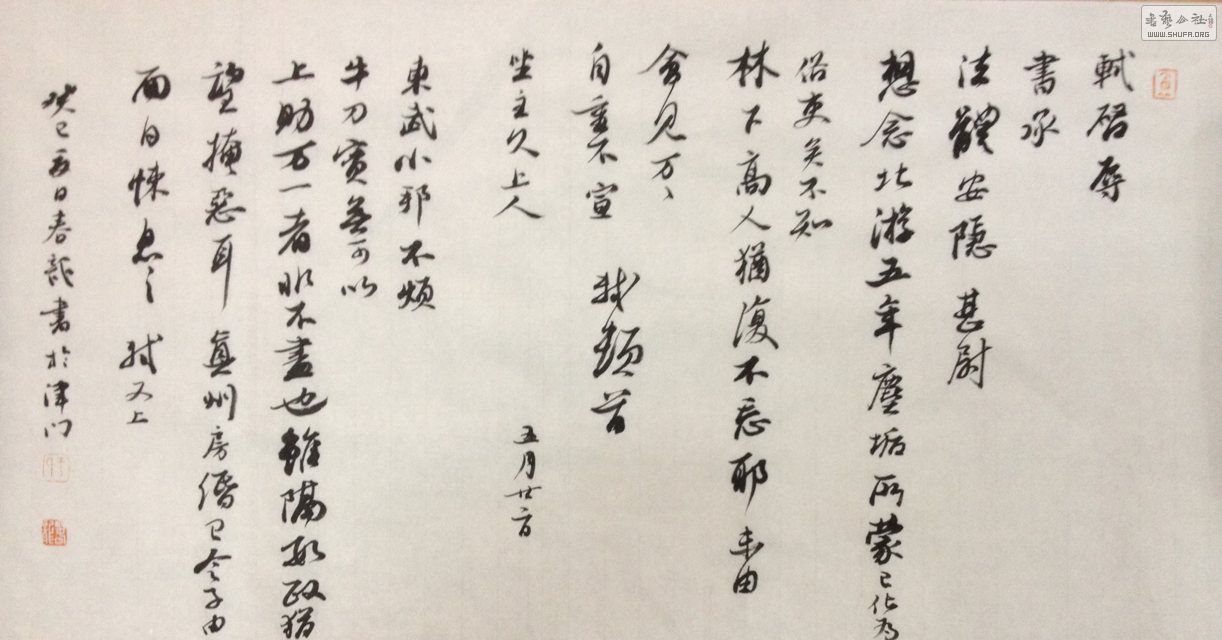 軾啓辱
書承
法體安隱 甚尉
想念北游五年塵垢所蒙已化為
俗吏矣不知
林下高人猶復不忘耶未由
會見万々
自重不宣 軾頓首
坐主久上人 五月廿二日
東武小邦不煩
牛刀實無可以
上助万一者非不盡也雖隔數政猶
望掩惡耳 真州房緡已令子由
面白悚息々 軾又上
癸巳夏日春龍書於津門
書藝公社
WWW.SHUFA.ORG